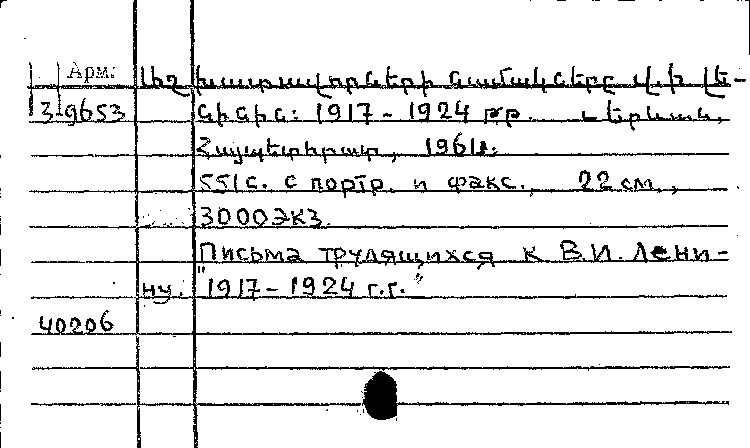 Арм. Աշխատավորների նամակները Վ. Ի. Լե-
3-9653 նինին: 1917 - 1924 թթ. - Երևան,
Հայպետհրատ, 1961թ.
551с. с портр. и факс., 22 см.,
3000экз.
Письма трудящихся к В.И. Лени-
ну. "1917-1924 г.г."
40206